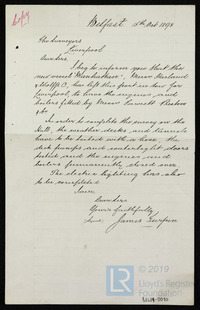 Copy
Belfast 15th Oct. 1898
The Surveyors
Liverpool
Dear Sirs
I beg to inform you that the
new vessel "Manhattan", Messrs Harland
& Wolff's, has left this port in tow for
Liverpool, to have the engines and
boilers fitted by Messrs
& Co.
In order to complete the survey on the
Hull, the weather decks and
have to be tested with a hose. The
deck pumps and watertight doors
tested and the engines and
boilers permanently closed over.
The electric lighting has also
to be completed
I am
Dear Sirs
Yours faithfully
James
© 2019
Lloyd's Register
Foundation